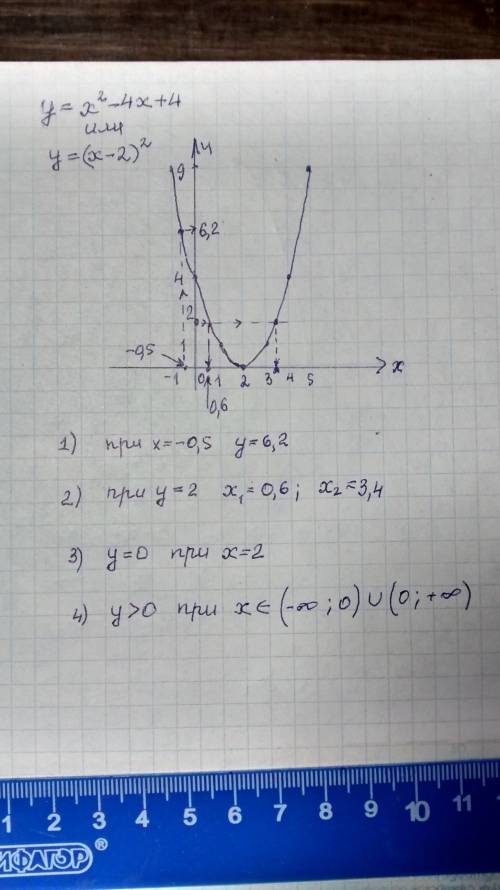 y = x² - 4x + 4
или
y = (x - 2)²
y
9
6,2
4
2
1
-0,5
-1 0 1 2 3 4 5 x
0,6
1) при x = -0,5 y = 6,2
2) при y = 2 x₁ = 0,6 ; x₂ = 3,4
3) y = 0 при x = 2
4) y > 0 при x ∈ (-∞ ; 0) ∪ (0 ; +∞)
1 2 3 4 5 6 7 8 9 10 11
ИФАГОР®